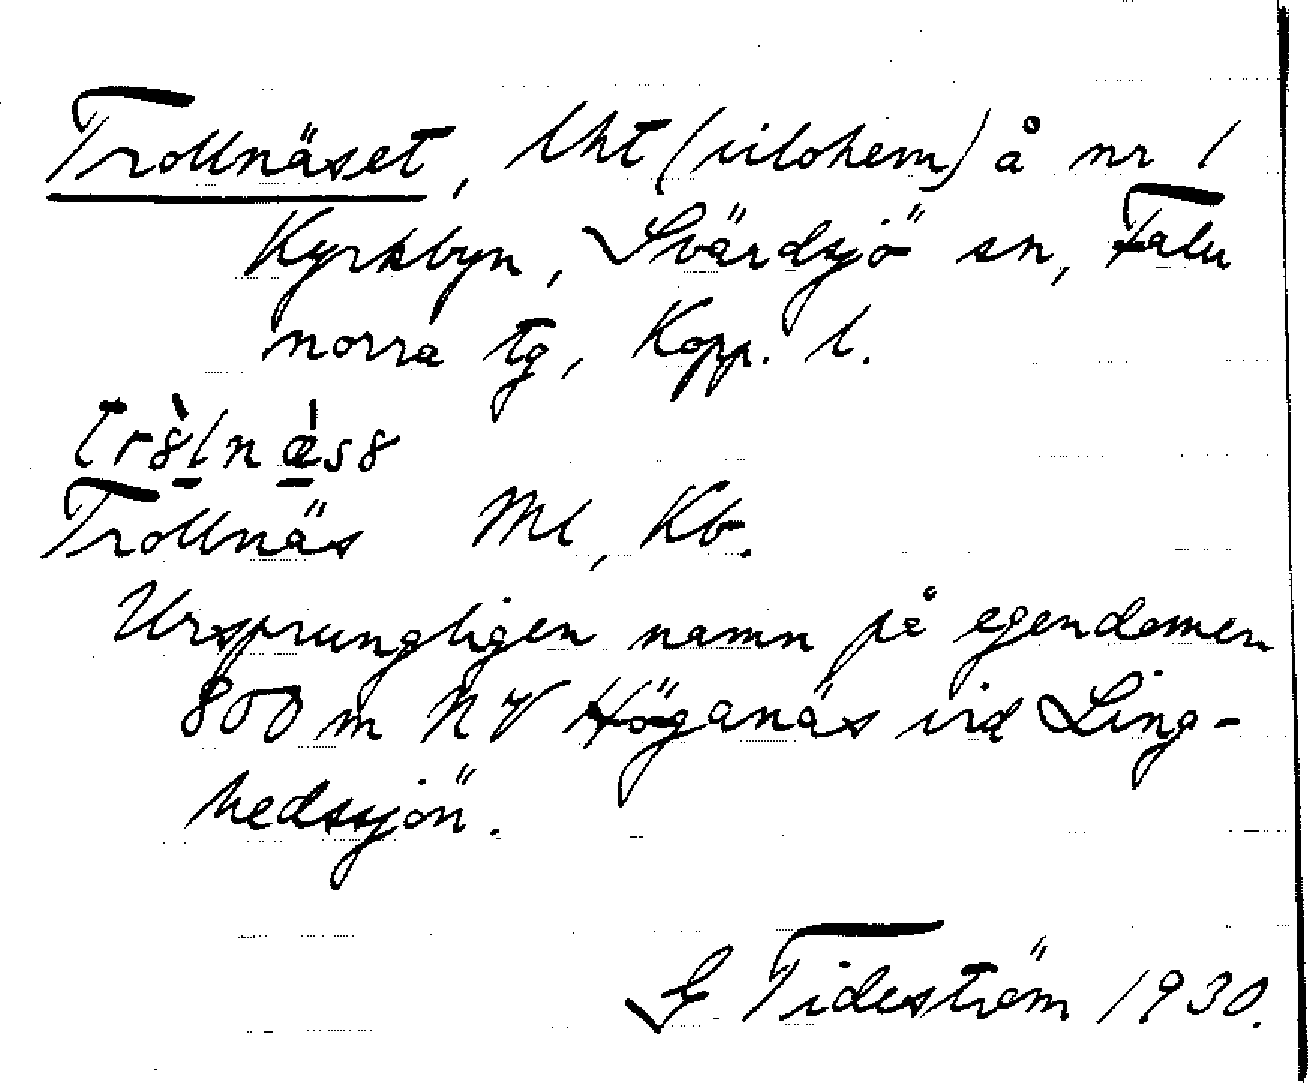 Trollnäset, lht (vilohem) å nr 1
Kyrkbyn, Svärdsjö sn, Falu
norra tg, Kopp. l.
tr8̀ln ǽs8
Trollnäs Ml, Kb.
Ursprungligen namn på egendomen
800 m NV Höganäs vid Ling-
hedssjön.
G Tideström 1930.